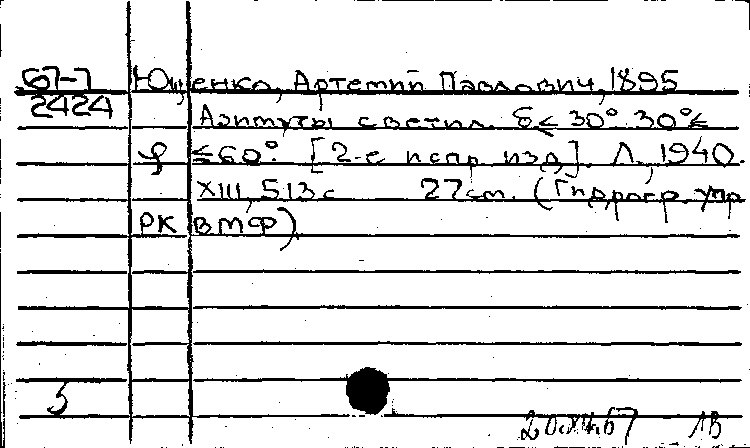 67-7 Ющенко, Артемий Павлович, 1895
2424 Азимуты светил. δ ≤ 30° 30° ≤
φ ≤ 60°. [2-е испр. изд]. Л., 1940.
XIII, 513 с 27 см. (Гидрогр. упр
РК ВМФ).
5
20.XII.67 1В